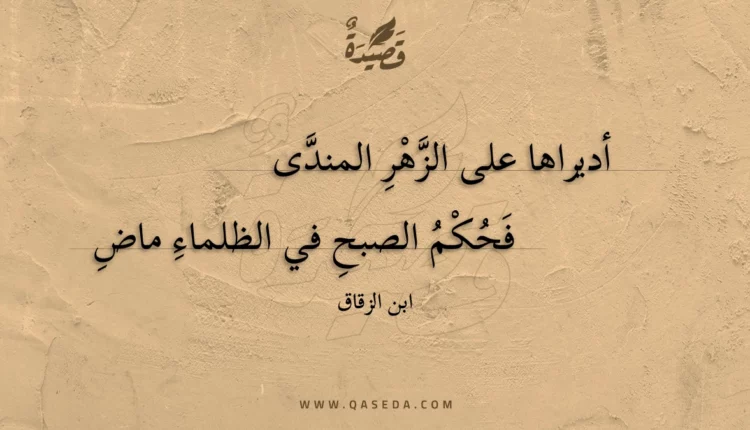 قَصِيْدَةٌ
أديراها على الزَّهْرِ المندَّى
فَحُكْمُ الصبحِ في الظلماءِ ماضِ
ابن الزقاق
WWW.QASEDA.COM